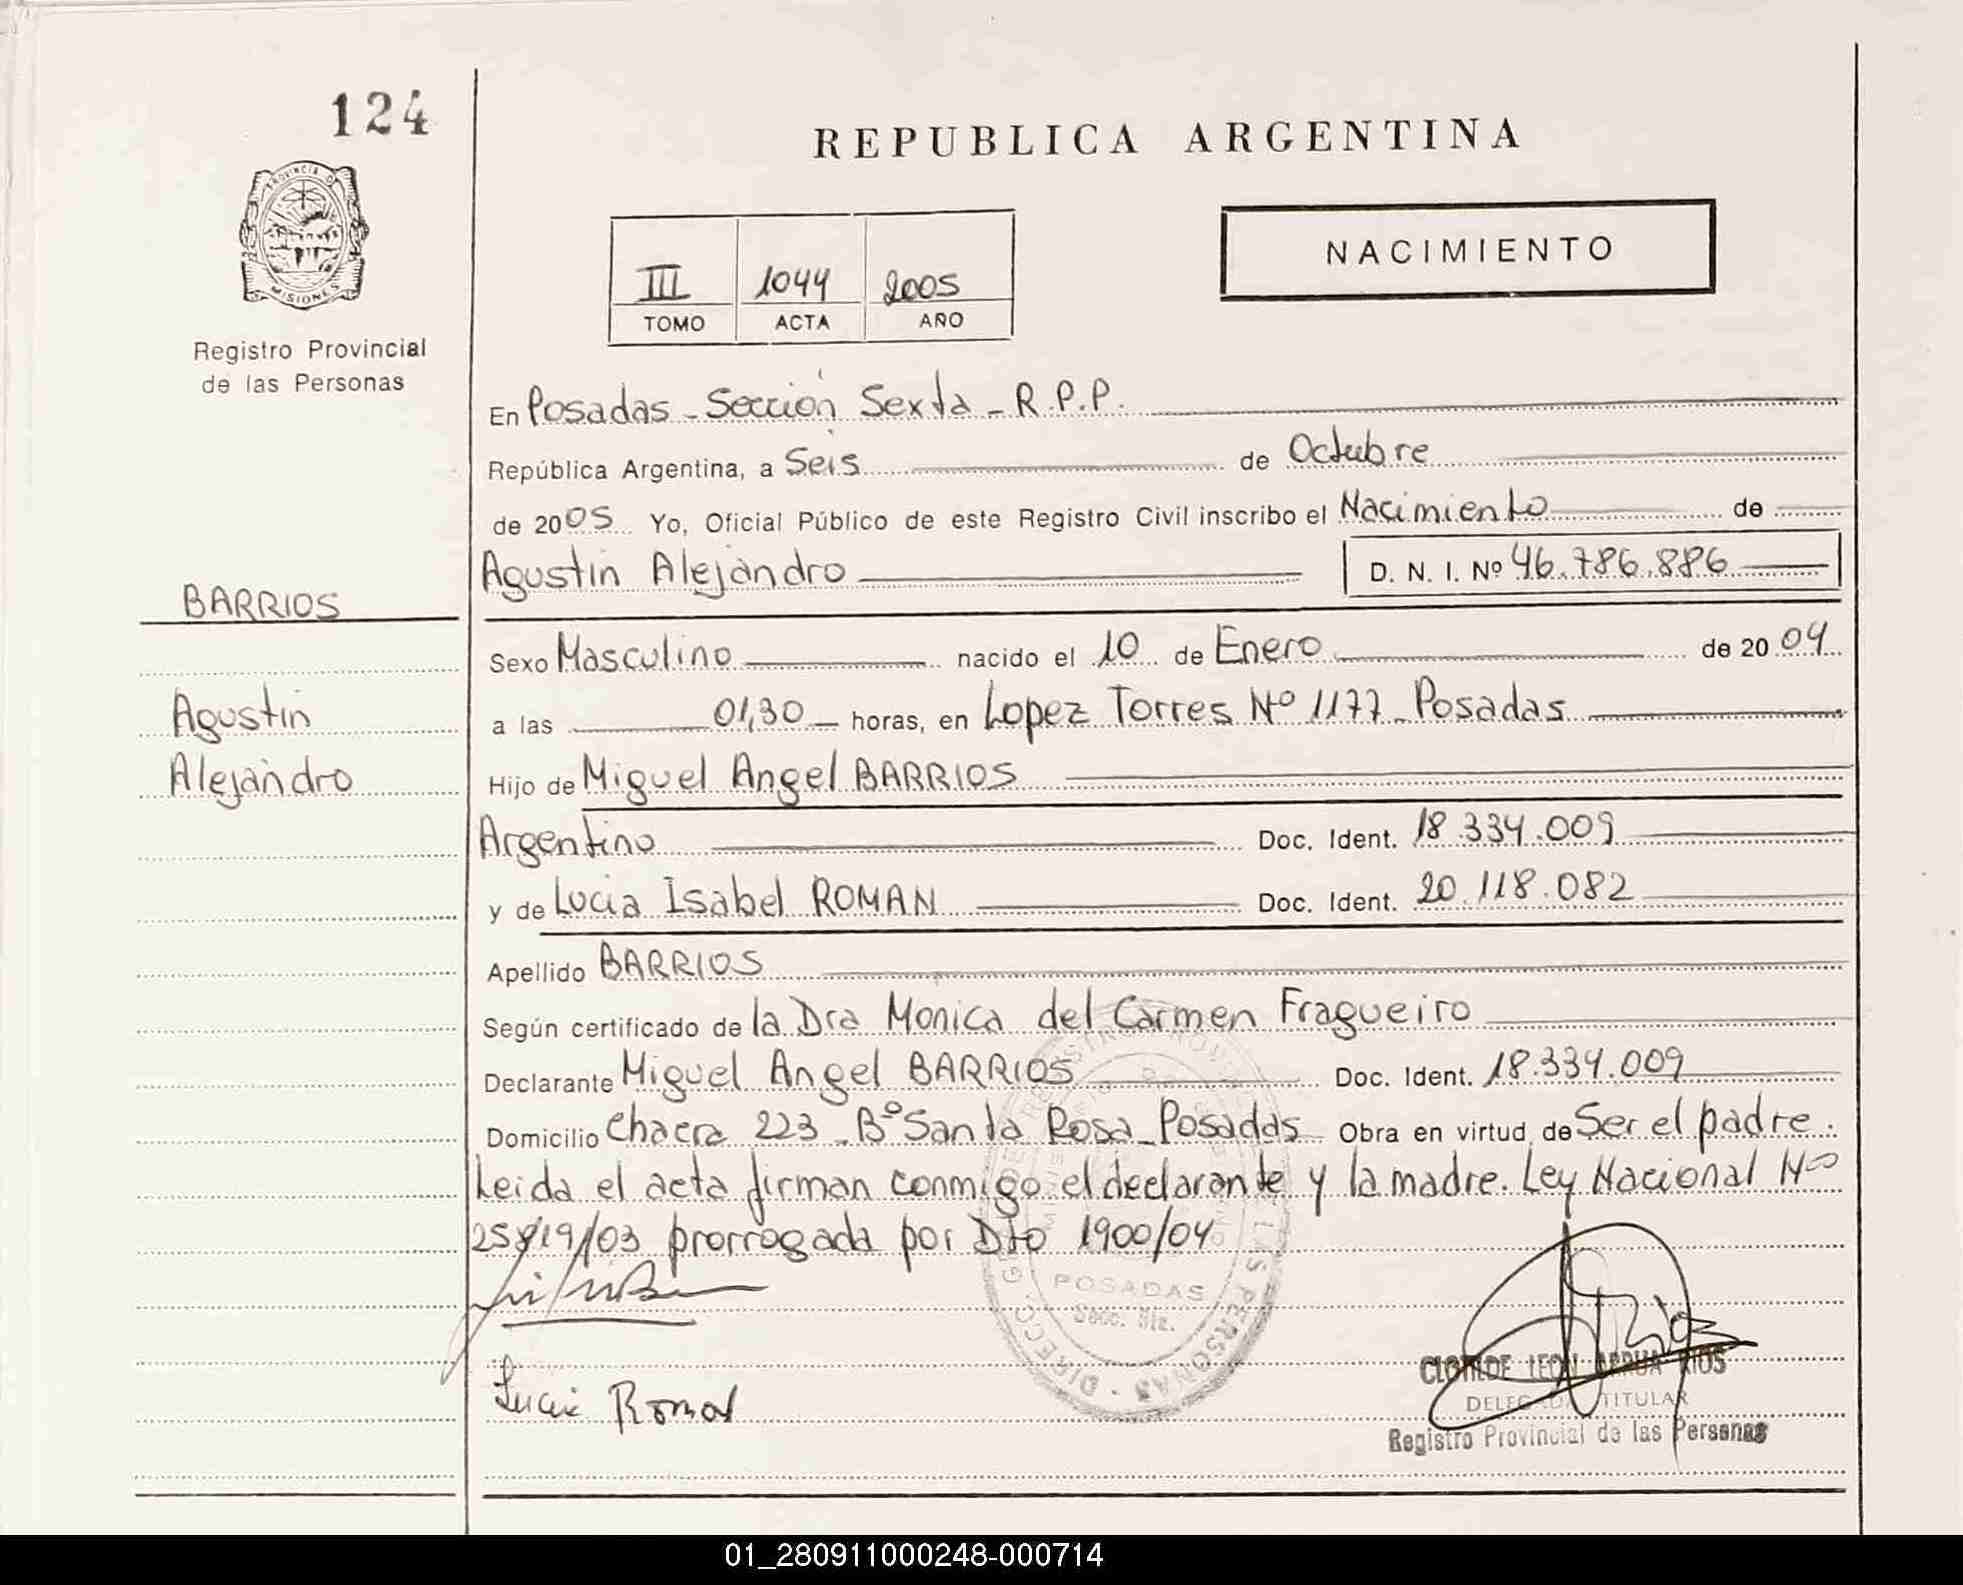 124
REPUBLICA ARGENTINA
PROVINCIA D
MISIONES
Registro Provincial
de las Personas
NACIMIENTO
III 1044 2005
TOMO ACTA AÑO
En Posadas - Sección Sexta - R.P.P.
República Argentina, a Seis de Octubre
de 2005 Yo, Oficial Público de este Registro Civil inscribo el Nacimiento de
Agustin Alejandro D. N. I. Nº 46.786.886
BARRIOS
Sexo Masculino nacido el 10 de Enero de 2004
Agustin
a las 01,30 horas, en Lopez Torres Nº 1177 - Posadas
Alejandro
Hijo de Miguel Angel BARRIOS
Argentino Doc. Ident. 18.334.009
y de Lucia Isabel ROMAN Doc. Ident. 20.118.082
Apellido BARRIOS
Según certificado de la Dra Monica del Carmen Fragueiro
Declarante Miguel Angel BARRIOS Doc. Ident. 18.334.009
Domicilio Chacra 223 - Bº Santa Rosa - Posadas Obra en virtud de Ser el padre.
Leida el acta firman conmigo el declarante y la madre. Ley Nacional Nº
25819/03 prorrogada por Dto 1900/04
POSADAS
Secc.
PERSONAS
Lucia Roman
CLOTILDE LEON ARRUA RIOS
DELEGADA TITULAR
Registro Provincial de las Personas
01_280911000248-000714